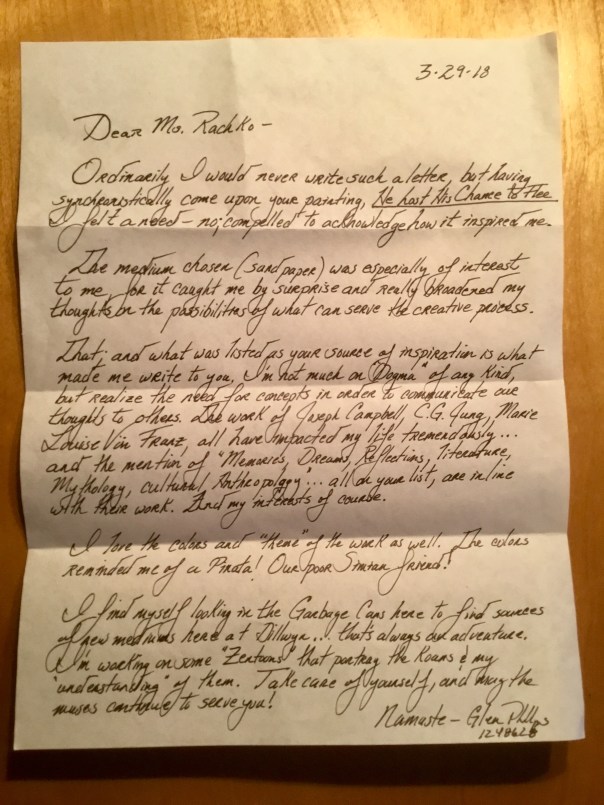 3-29-18
Dear Ms. Rachko -
Ordinarily I would never write such a letter, but having
synchronistically come upon your painting, He Lost His Chance to Flee
I felt a need - no; compelled to acknowledge how it inspired me.
The medium chosen (sandpaper) was especially of interest
to me for it caught me by surprise and really broadened my
thoughts on the possibilities of what can serve the creative process.
That; and what was listed as your source of inspiration is what
made me write to you. I'm not much on "Dogma" of any kind,
but realize the need for concepts in order to communicate our
thoughts to others. The work of Joseph Campbell, C.G. Jung, Marie
Louise Von Franz, all have impacted my life tremendously...
and the mention of "Memories, Dreams, Reflections, literature,
Mythology, cultural Anthropology"... all on your list, are inline
with their work. And my interests of course.
I love the colors and "theme" of the work as well. The colors
reminded me of a Pinata! Our poor Simian friend!
I find myself looking in the Garbage Cans here to find sources
of new mediums here at Dillwyn... thats always an adventure.
I'm working on some "Zentoons" that portray the Koans & my
"understanding" of them. Take care of yourself, and may the
muses continue to serve you!
Namaste - Glen Phillips
1248628